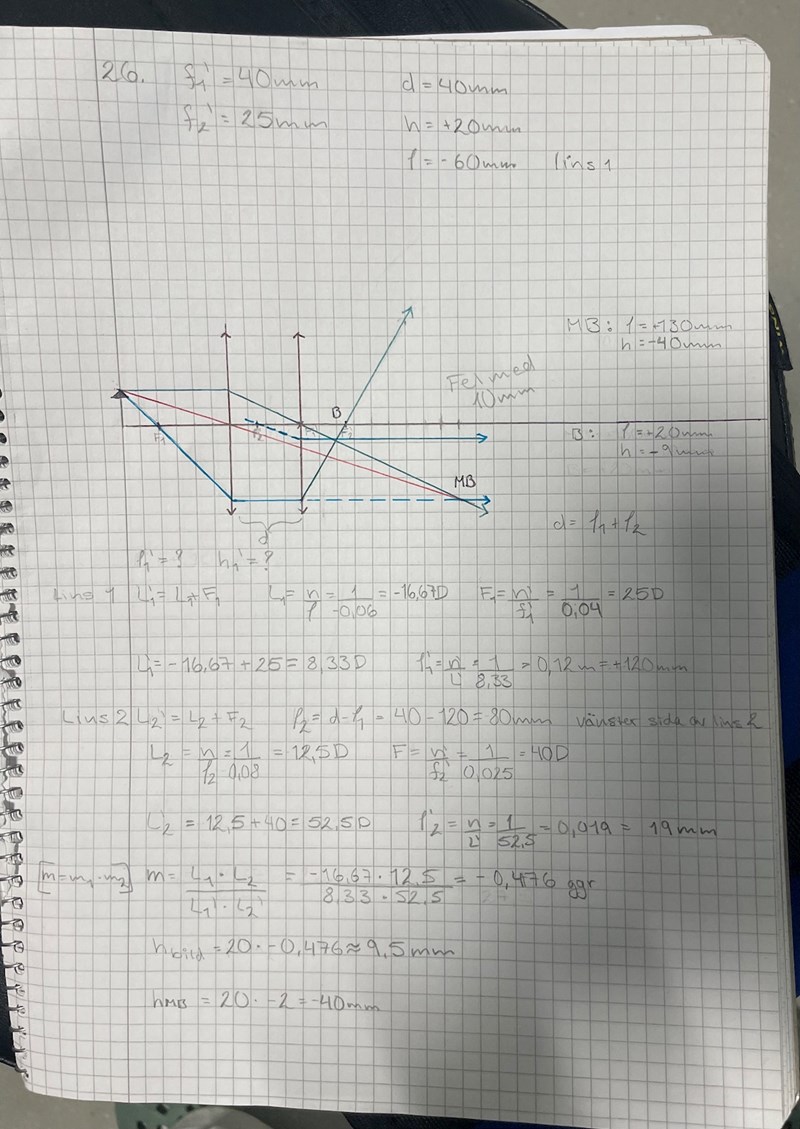 26. f₁' = 40mm d = 40mm
f₂' = 25mm h = +20mm
l = -60mm lins 1
MB: l = +130mm
h = -40mm
Fel med
10mm
B
F₁ F₂ F₁' F₂'
B: l = +20mm
h = -9mm
MB
d
d = f₁ + f₂
l₁' = ? h₁' = ?
Lins 1 L₁' = L₁ + F₁ L₁ = n/l = 1/-0,06 = -16,67D F₁ = n'/f₁' = 1/0,04 = 25D
L₁' = -16,67 + 25 = 8,33D l₁' = n'/L' = 1/8,33 = 0,12m = +120mm
Lins 2 L₂' = L₂ + F₂ l₂ = d - l₁' = 40 - 120 = 80mm vänster sida av lins 2
L₂ = n/l₂ = 1/0,08 = 12,5D F = n'/f₂' = 1/0,025 = 40D
L₂' = 12,5 + 40 = 52,5D l₂' = n/L' = 1/52,5 = 0,019 = 19mm
[m = m₁ · m₂] m = L₁ · L₂/L₁' · L₂' = -16,67 · 12,5/8,33 · 52,5 = -0,476 ggr
h bild = 20 · -0,476 ≈ 9,5mm
h MB = 20 · -2 = -40mm